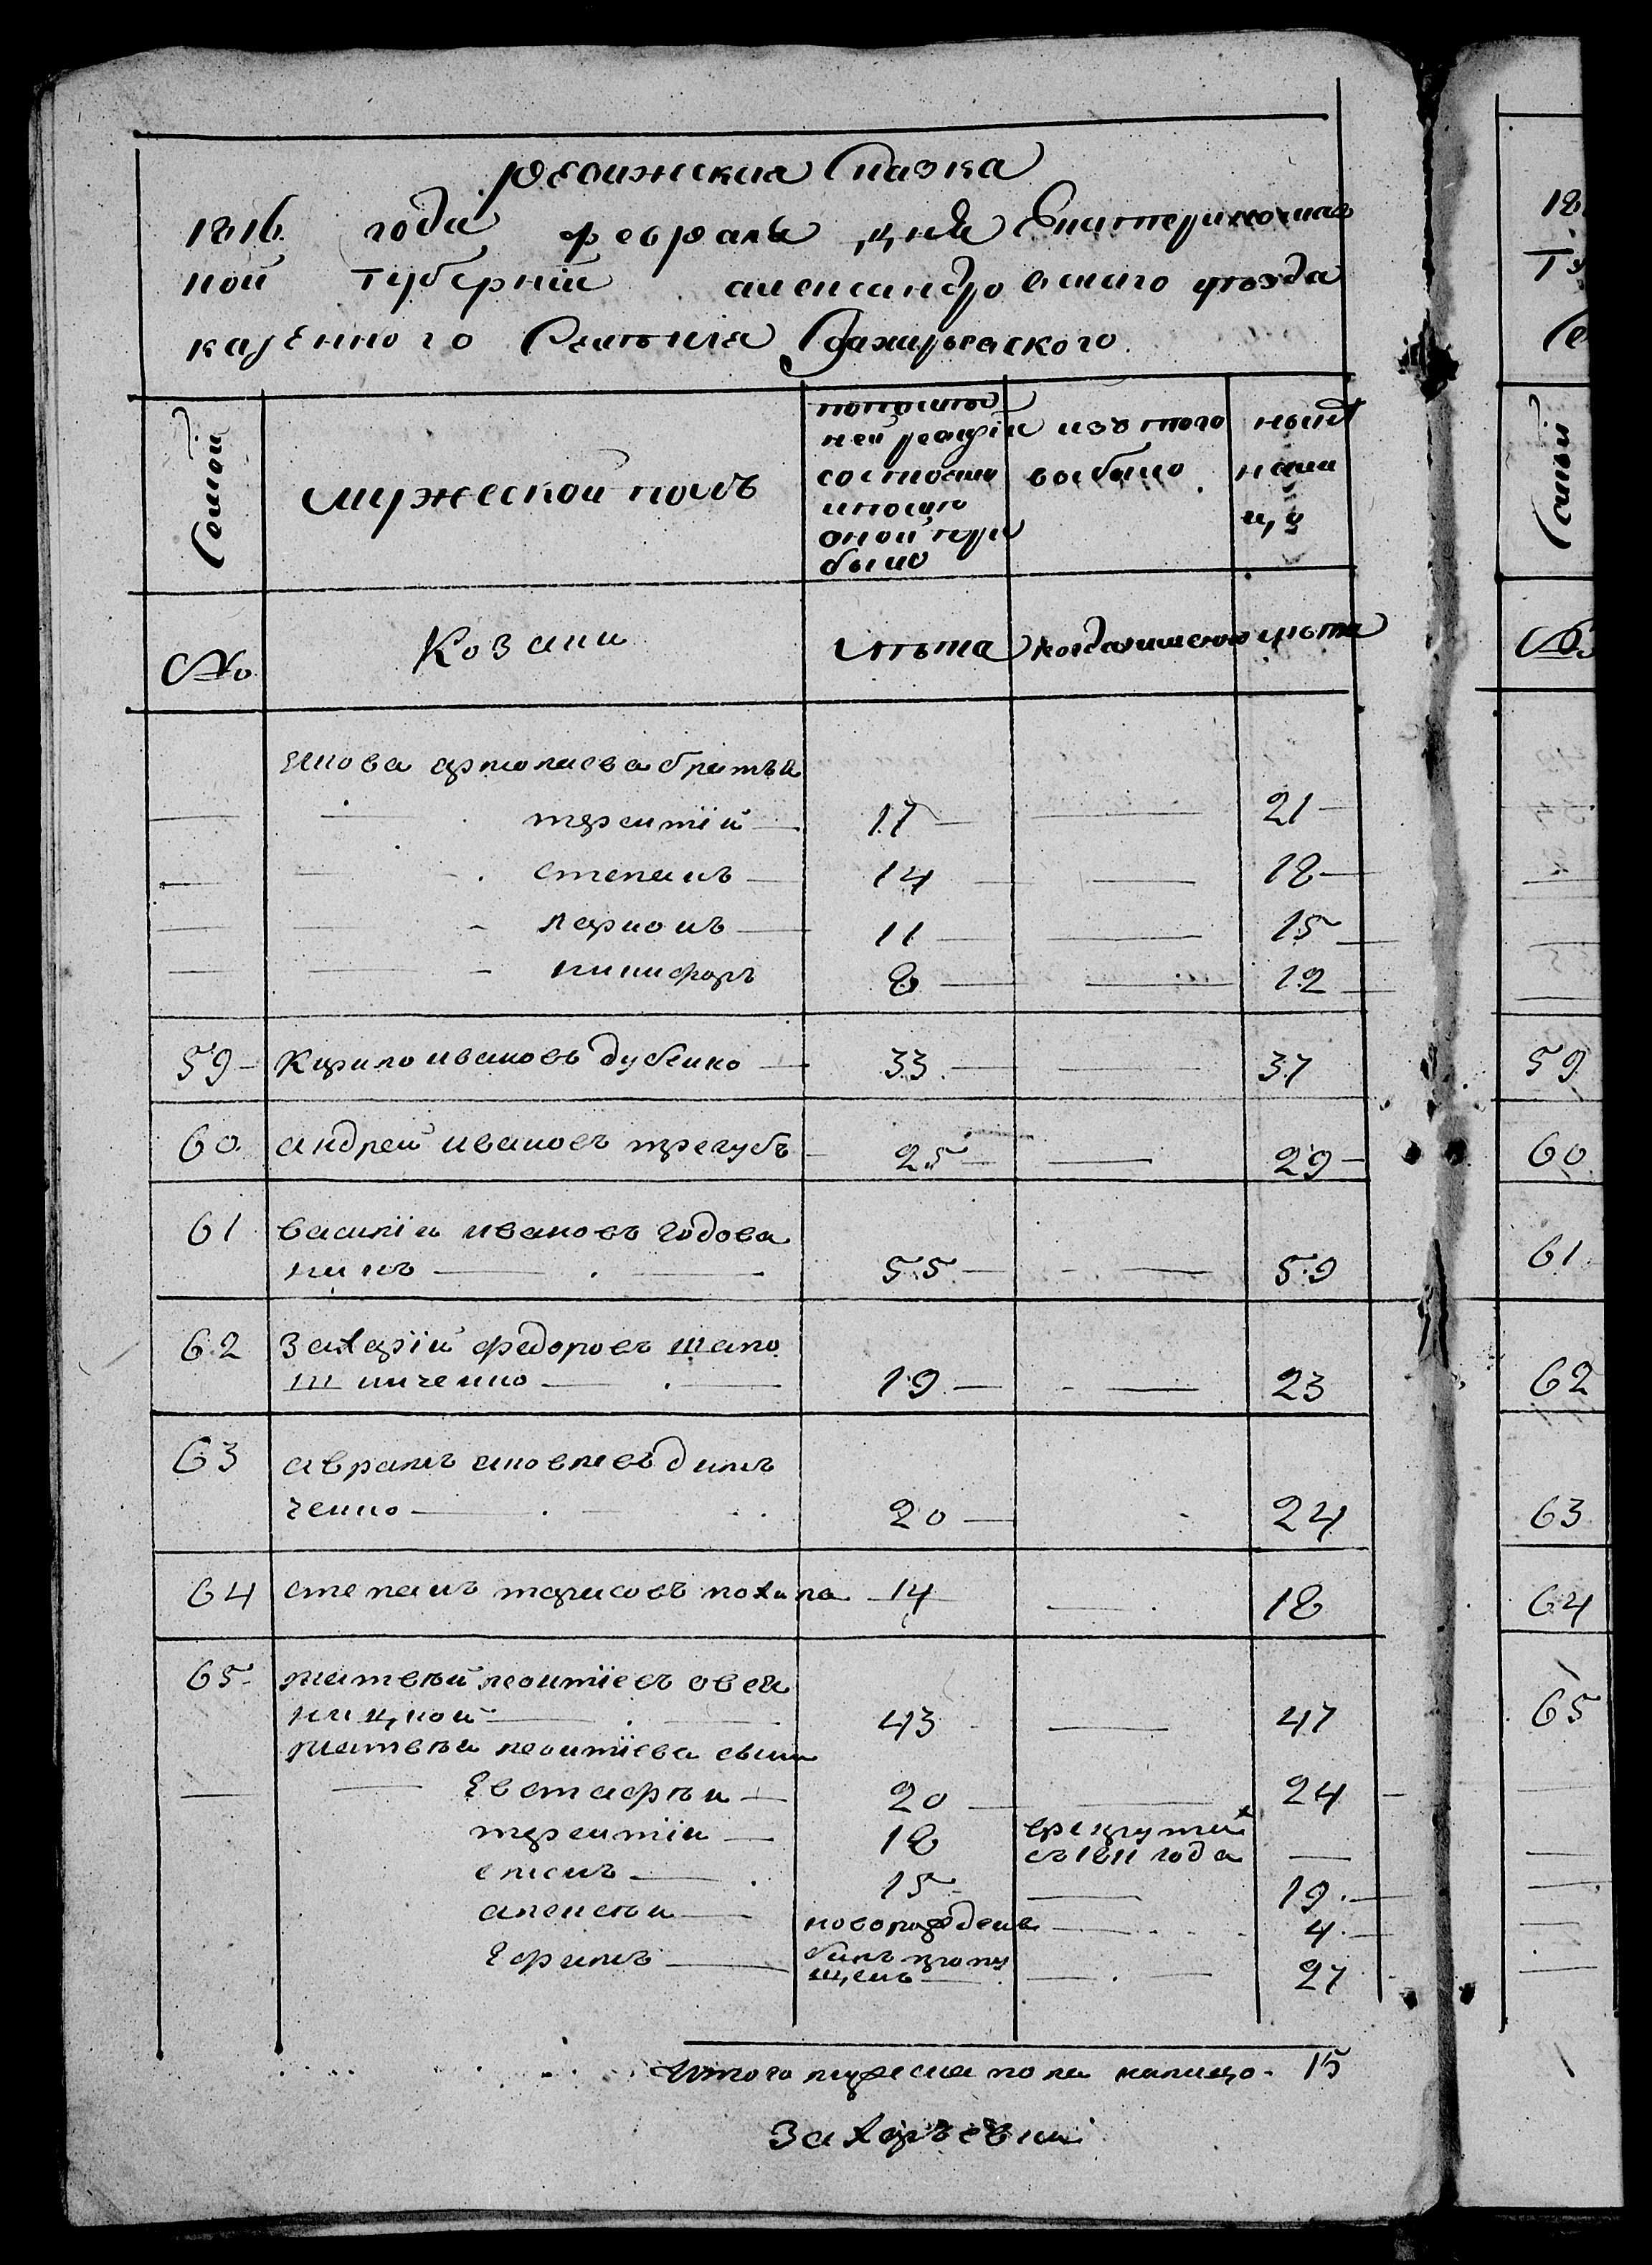 ревижская Сказка
1816. года февраля дня Екатеринослав
ской губерніи александровскаго уезда
казенного Селенія Захарьевского
Семьи
мужеской полъ
попослед
ней ревизіи
состояло
ипосле
оной при
было
изъ того
выбыло
ныне
нали
цо
№
Козаки
лета
когда именно
лета
якова ермолаева братья
терентій 17 21
степанъ 14 18
ларионъ 11 15
никифоръ 8 12
59 Кирило ивановъ дубенко 33 37
60 андрей ивановъ трегубъ 25 29
61 василій ивановъ годова
нинъ 55 59
62 Захарій федоровъ шапо
шниченко 19 23
63 аврамъ яковлевъ дим
ченко 20 24
64 степанъ тарасовъ похила 14 18
65 матвей леонтіевъ овся
ницкой 43 47
матвея леонтіева сыны
Евстафей 20 24
терентій 18 врекрути
съ 1811 года
15 19
алексей новорожденъ 4
Ефимъ былъ пропу
щенъ 27
Итого мужеска пола налицо 15
18
Семьи
59
60
61
62
63
64
65